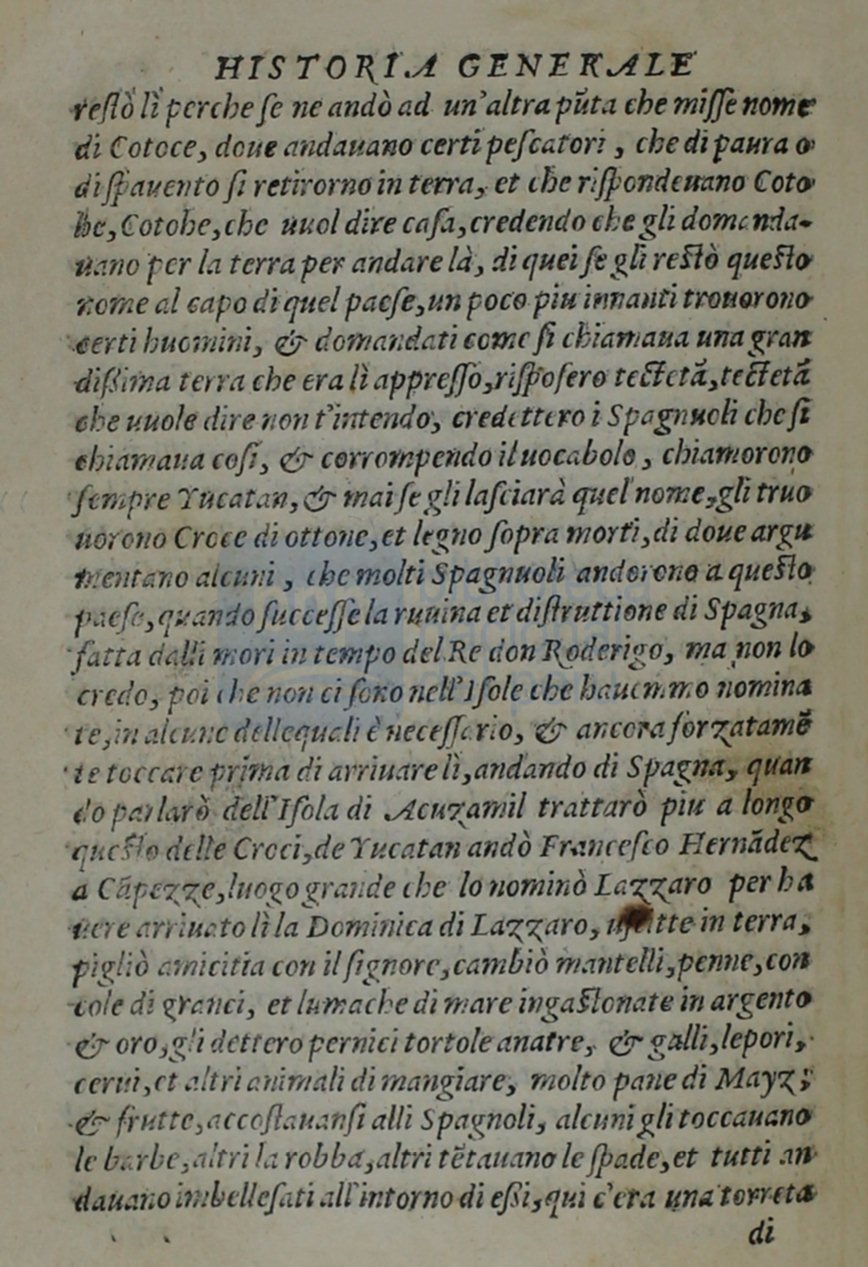 HISTORIA GENERALE
restò lì perche se ne andò ad un'altra pũta che misse nome
di Cotoce, doue andauano certi pescatori, che di paura o
di spauento si retirorno in terra, et che rispondeuano Coto
he, Cotohe, che uuol dire casa, credendo che gli domanda-
uano per la terra per andare là, di quei se gli restò questo
nome al capo di quel paese, un poco piu innanti trouorono
certi huomini, & domandati come si chiamaua una gran
dißima terra che era lì appresso, risposero tectetã, tectetã
che uuole dire non t'intendo, credettero i Spagnuoli che si
chiamaua cosi, & corrompendo il uocabolo, chiamorono
sempre Yucatan, & mai se gli lasciarà quel nome, gli truo
uorono Croce di ottone, et legno sopra morti, di doue argu
mentano alcuni, che molti Spagnuoli andorono a questo
paese, quando successe la ruuina et distruttione di Spagna,
fatta dalli mori in tempo del Re don Roderigo, ma non lo
credo, poi che non ci sono nell'Isole che hauemmo nomina
te, in alcune dellequali è necessario, & ancora forzatamẽ
te toccare prima di arriuare lì, andando di Spagna, quan
do parlarò dell'Isola di Acuzamil trattarò piu a longo
questo delle Croci, de Yucatan andò Francesco Hernãdez
a Cãpezze, luogo grande che lo nominò Lazzaro per ha
uere arriuato lì la Dominica di Lazzaro, in terra,
pigliò amicitia con il signore, cambiò mantelli, penne, con
cole di granci, et lumache di mare ingastonate in argento
& oro, gli dettero pernici tortole anatre, & galli, lepori,
cerui, et altri animali di mangiare, molto pane di Mayz,
& frutte, accostauansi alli Spagnoli, alcuni gli toccauano
le barbe, altri la robba, altri tẽtauano le spade, et tutti an
dauano imbellesati all'intorno di eßi, qui c'era una torreta
di